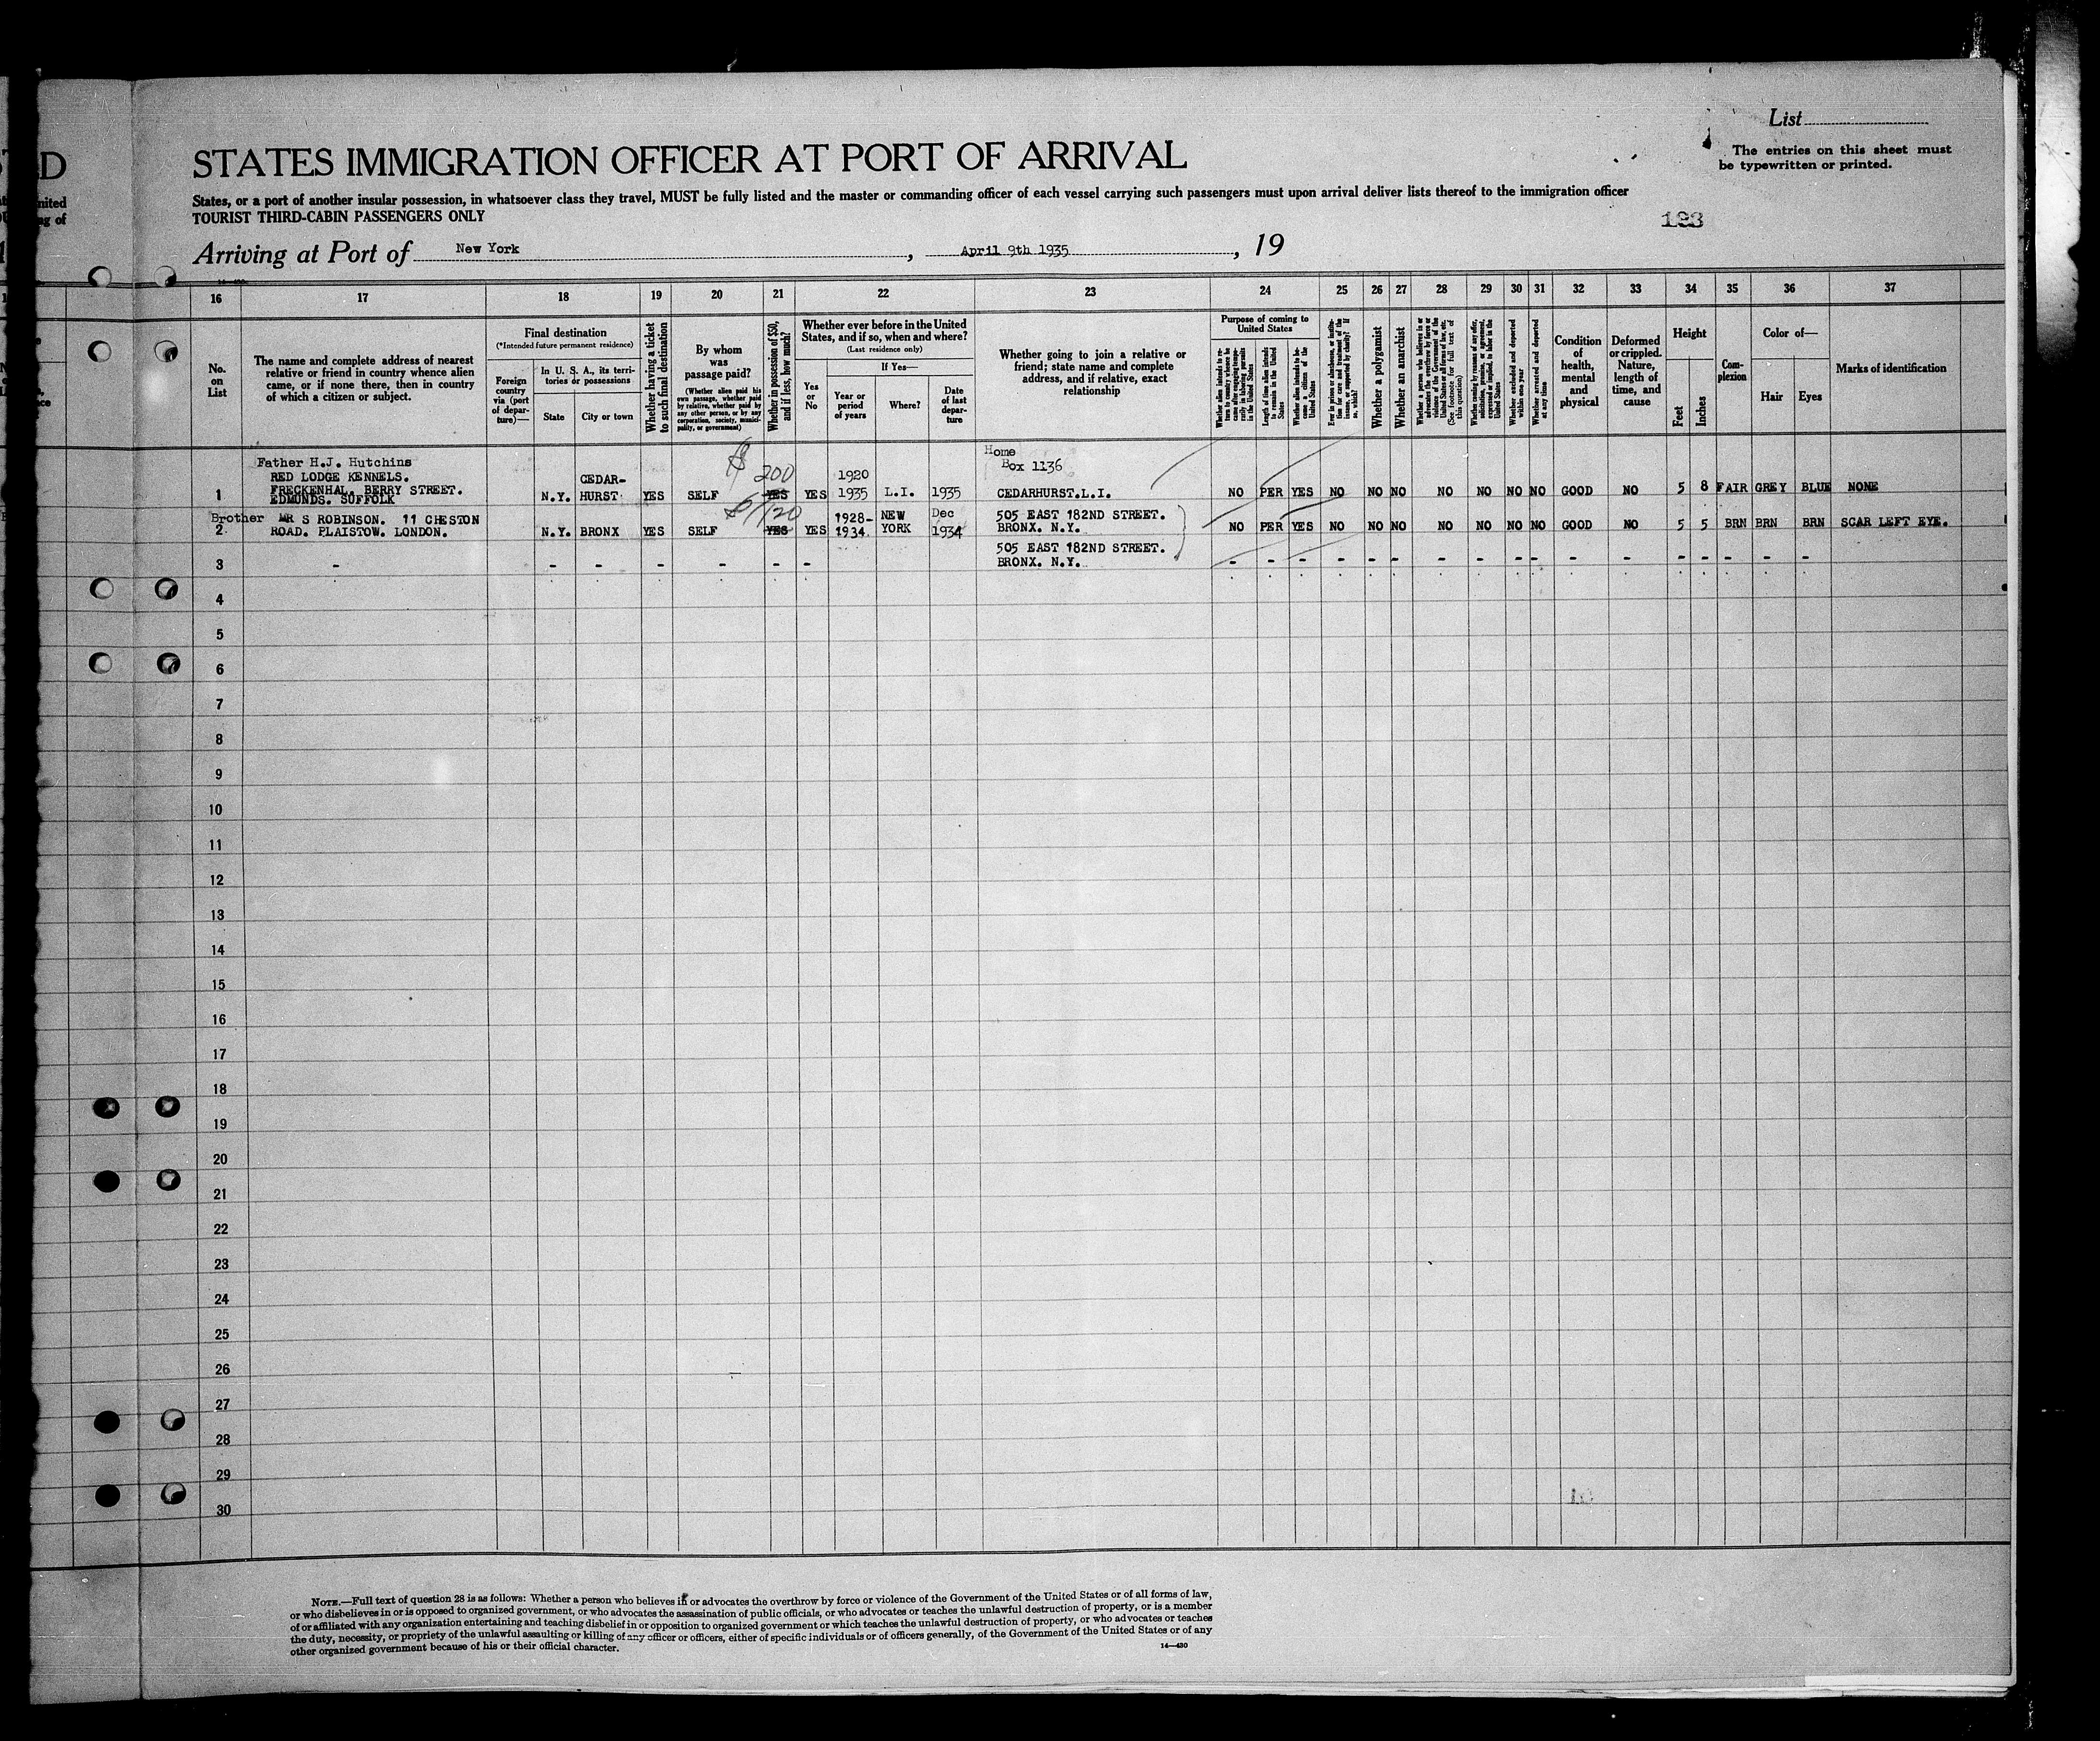 List
The entries on this sheet must
be typewritten or printed.
D
STATES IMMIGRATION OFFICER AT PORT OF ARRIVAL
States, or a port of another insular possession, in whatsoever class they travel, MUST be fully listed and the master or commanding officer of each vessel carrying such passengers must upon arrival deliver lists thereof to the immigration officer
TOURIST THIRD-CABIN PASSENGERS ONLY
193
Arriving at Port of New York, April 9th 1935, 19
16 17 18 19 20 21 22 23 24 25 26 27 28 29 30 31 32 33 34 35 36 37
No.
on
List
The name and complete address of nearest
relative or friend in country whence alien
came, or if none there, then in country
of which a citizen or subject.
Final destination
(*Intended future permanent residence)
Foreign
country
via (port
of depar-
ture)—
In U. S. A., its terri-
tories or possessions
State
City or town
Whether having a ticket
to such final destination
By whom
was
passage paid?
(Whether alien paid his
own passage, whether paid
by relative, whether paid by
any other person, or by any
corporation, society, munici-
pality, or government)
Whether in possession of $50,
and if less, how much?
Whether ever before in the United
States, and if so, when and where?
(Last residence only)
Yes
or
No
If Yes—
Year or
period
of years
Where?
Date
of last
depar-
ture
Whether going to join a relative or
friend; state name and complete
address, and if relative, exact
relationship
Purpose of coming to
United States
Length of time alien intends
to remain in the United
States
Whether alien intends to be-
come a citizen of the
United States
Whether a polygamist
Whether an anarchist
Whether excluded and deported
within one year
Whether arrested and deported
at any time
Condition
of
health,
mental
and
physical
Deformed
or crippled.
Nature,
length of
time, and
cause
Height
Feet
Inches
Com-
plexion
Color of—
Hair
Eyes
Marks of identification
Father H.J. Hutchins
RED LODGE KENNELS.
FRECKENHAL. BERRY STREET.
EDMUNDS. SUFFOLK
1 N.Y. CEDAR-
HURST YES SELF $ 200 YES YES 1920
1935 L.I. 1935 Home
Box 1136
CEDARHURST.L.I. NO PER YES NO NO NO NO NO NO NO GOOD NO 5 8 FAIR GREY BLUE NONE
Brother MR S ROBINSON. 11 CHESTON
2 ROAD. PLAISTOW. LONDON. N.Y. BRONX YES SELF $ 120 YES YES 1928-
1934. NEW
YORK Dec
1934 505 EAST 182ND STREET.
BRONX. N.Y. NO PER YES NO NO NO NO NO NO NO GOOD NO 5 5 BRN BRN BRN SCAR LEFT EYE.
3 - - - - - - - 505 EAST 182ND STREET.
BRONX. N.Y. - - - - - - - - - - - - - - - - -
4
5
6
7
8
9
10
11
12
13
14
15
16
17
18
19
20
21
22
23
24
25
26
27
28
29
30
NOTE.—Full text of question 28 is as follows: Whether a person who believes in or advocates the overthrow by force or violence of the Government of the United States or of all forms of law,
or who disbelieves in or is opposed to organized government, or who advocates the assassination of public officials, or who advocates or teaches the unlawful destruction of property, or is a member
of or affiliated with any organization entertaining and teaching disbelief in or opposition to organized government or which teaches the unlawful destruction of property, or who advocates or teaches
the duty, necessity, or propriety of the unlawful assaulting or killing of any officer or officers, either of specific individuals or of officers generally, of the Government of the United States or of any
other organized government because of his or their official character.
14—430